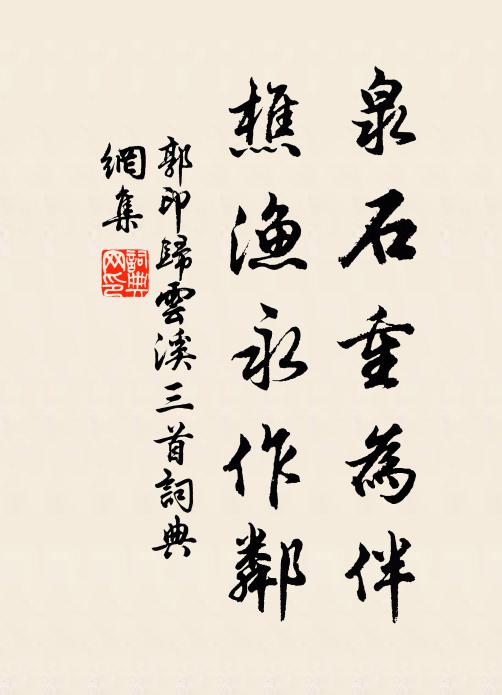 泉石重為伴
樵漁永作鄰
郭印歸雲溪三首詞典
網集
詞典
网印